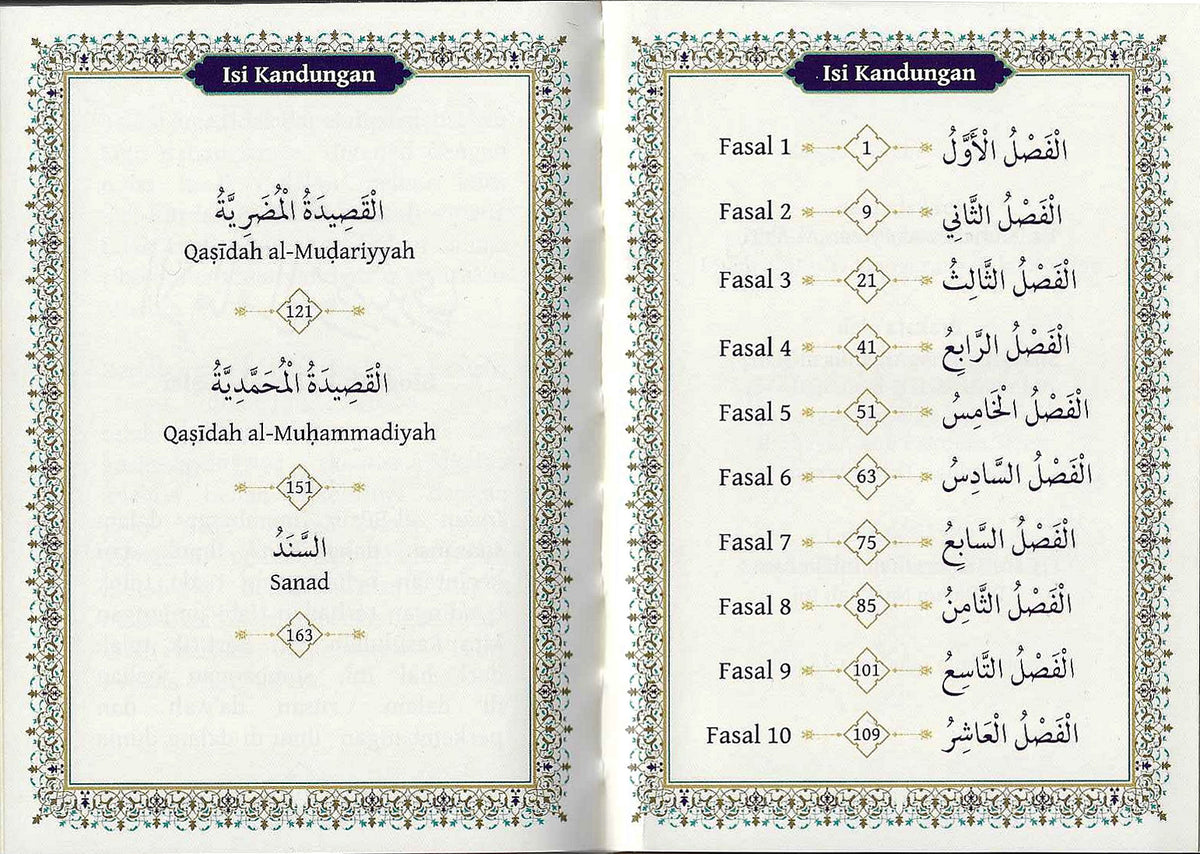 Isi Kandungan
Fasal 1 1 الْفَصْلُ الْأَوَّلُ
Fasal 2 9 الْفَصْلُ الثَّانِي
Fasal 3 21 الْفَصْلُ الثَّالِثُ
Fasal 4 41 الْفَصْلُ الرَّابِعُ
Fasal 5 51 الْفَصْلُ الْخَامِسُ
Fasal 6 63 الْفَصْلُ السَّادِسُ
Fasal 7 75 الْفَصْلُ السَّابِعُ
Fasal 8 85 الْفَصْلُ الثَّامِنُ
Fasal 9 101 الْفَصْلُ التَّاسِعُ
Fasal 10 109 الْفَصْلُ الْعَاشِرُ
Isi Kandungan
الْقَصِيدَةُ الْمُضَرِيَّةُ
Qaṣīdah al-Muḍariyyah
121
الْقَصِيدَةُ الْمُحَمَّدِيَّةُ
Qaṣīdah al-Muḥammadiyah
151
السَّنَدُ
Sanad
163